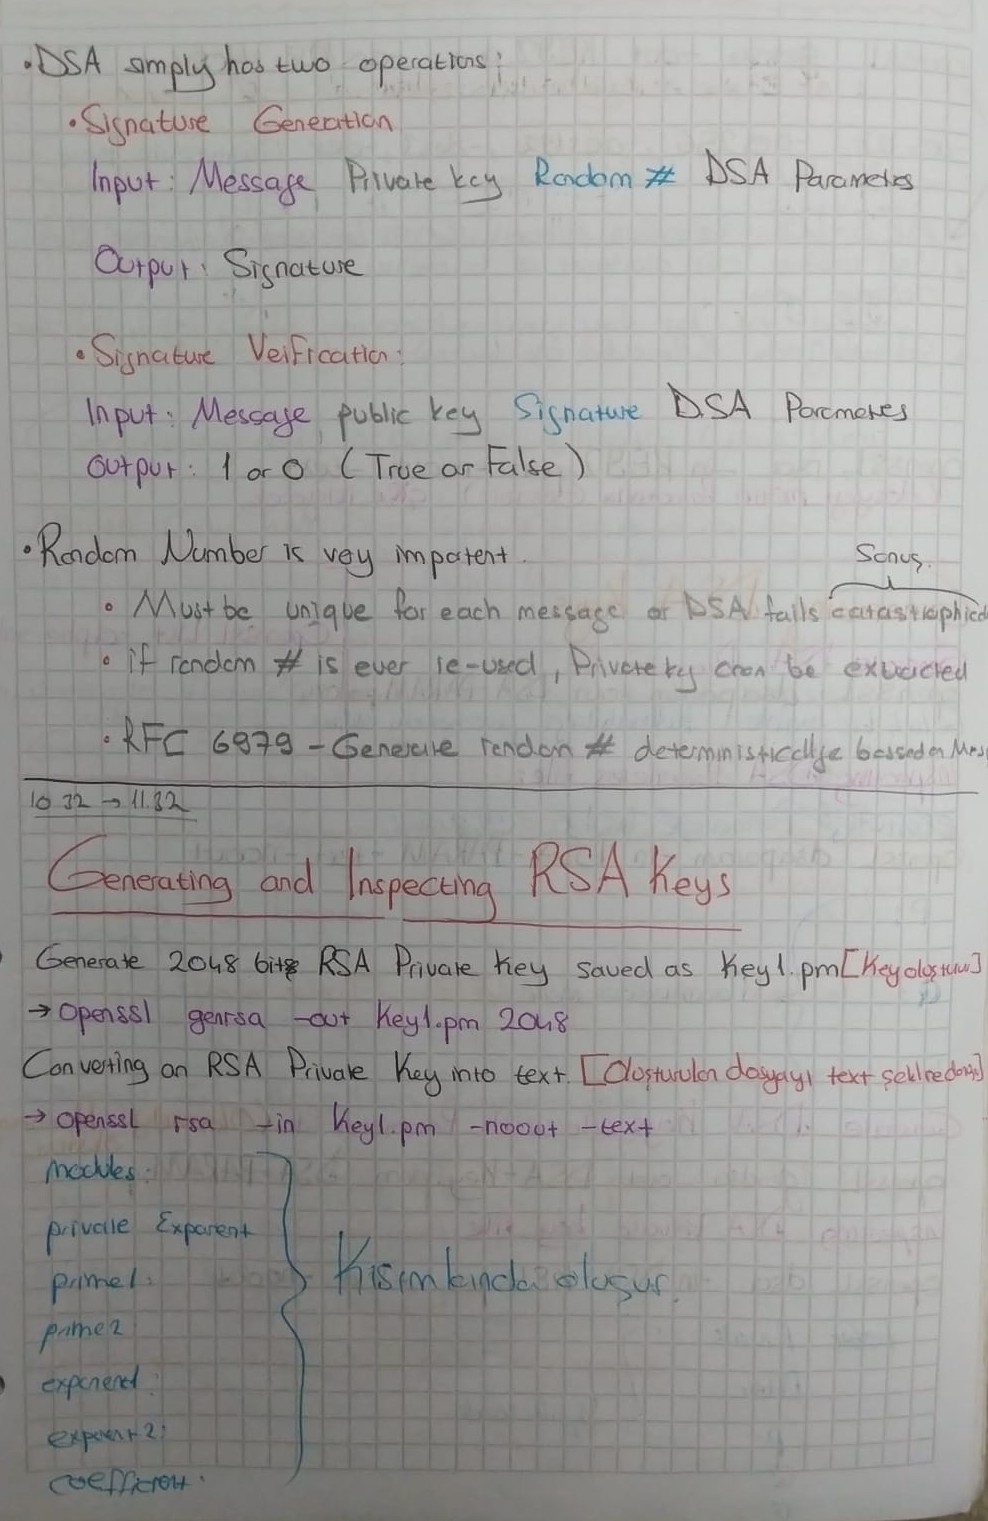 • DSA simply has two operations:
• Signature Generation
Input: Message Private key Random # DSA Parameters
Output: Signature
• Signature Verification:
Input: Message public key Signature DSA Parameters
Output: 1 or 0 (True or False)
• Random Number is very important.
Sonuç.
• Must be unique for each message or DSA fails catastrophica
• if random # is ever re-used, Private key can be extracted
• RFC 6979 - Generate random # deterministically bassed on Mes
10.32 → 11.32
Generating and Inspecting RSA Keys
Generate 2048 bits RSA Private Key saved as Key1.pm [Key oluşturur]
→ openssl genrsa -out Key1.pm 2048
Converting an RSA Private Key into text. [Oluşturulan dosyayı text şekline]
→ openssl rsa -in Key1.pm -noout -text
modules:
private Exponent
prime1:
prime2
exponent:
exponent2:
coefficient:
oluşur.